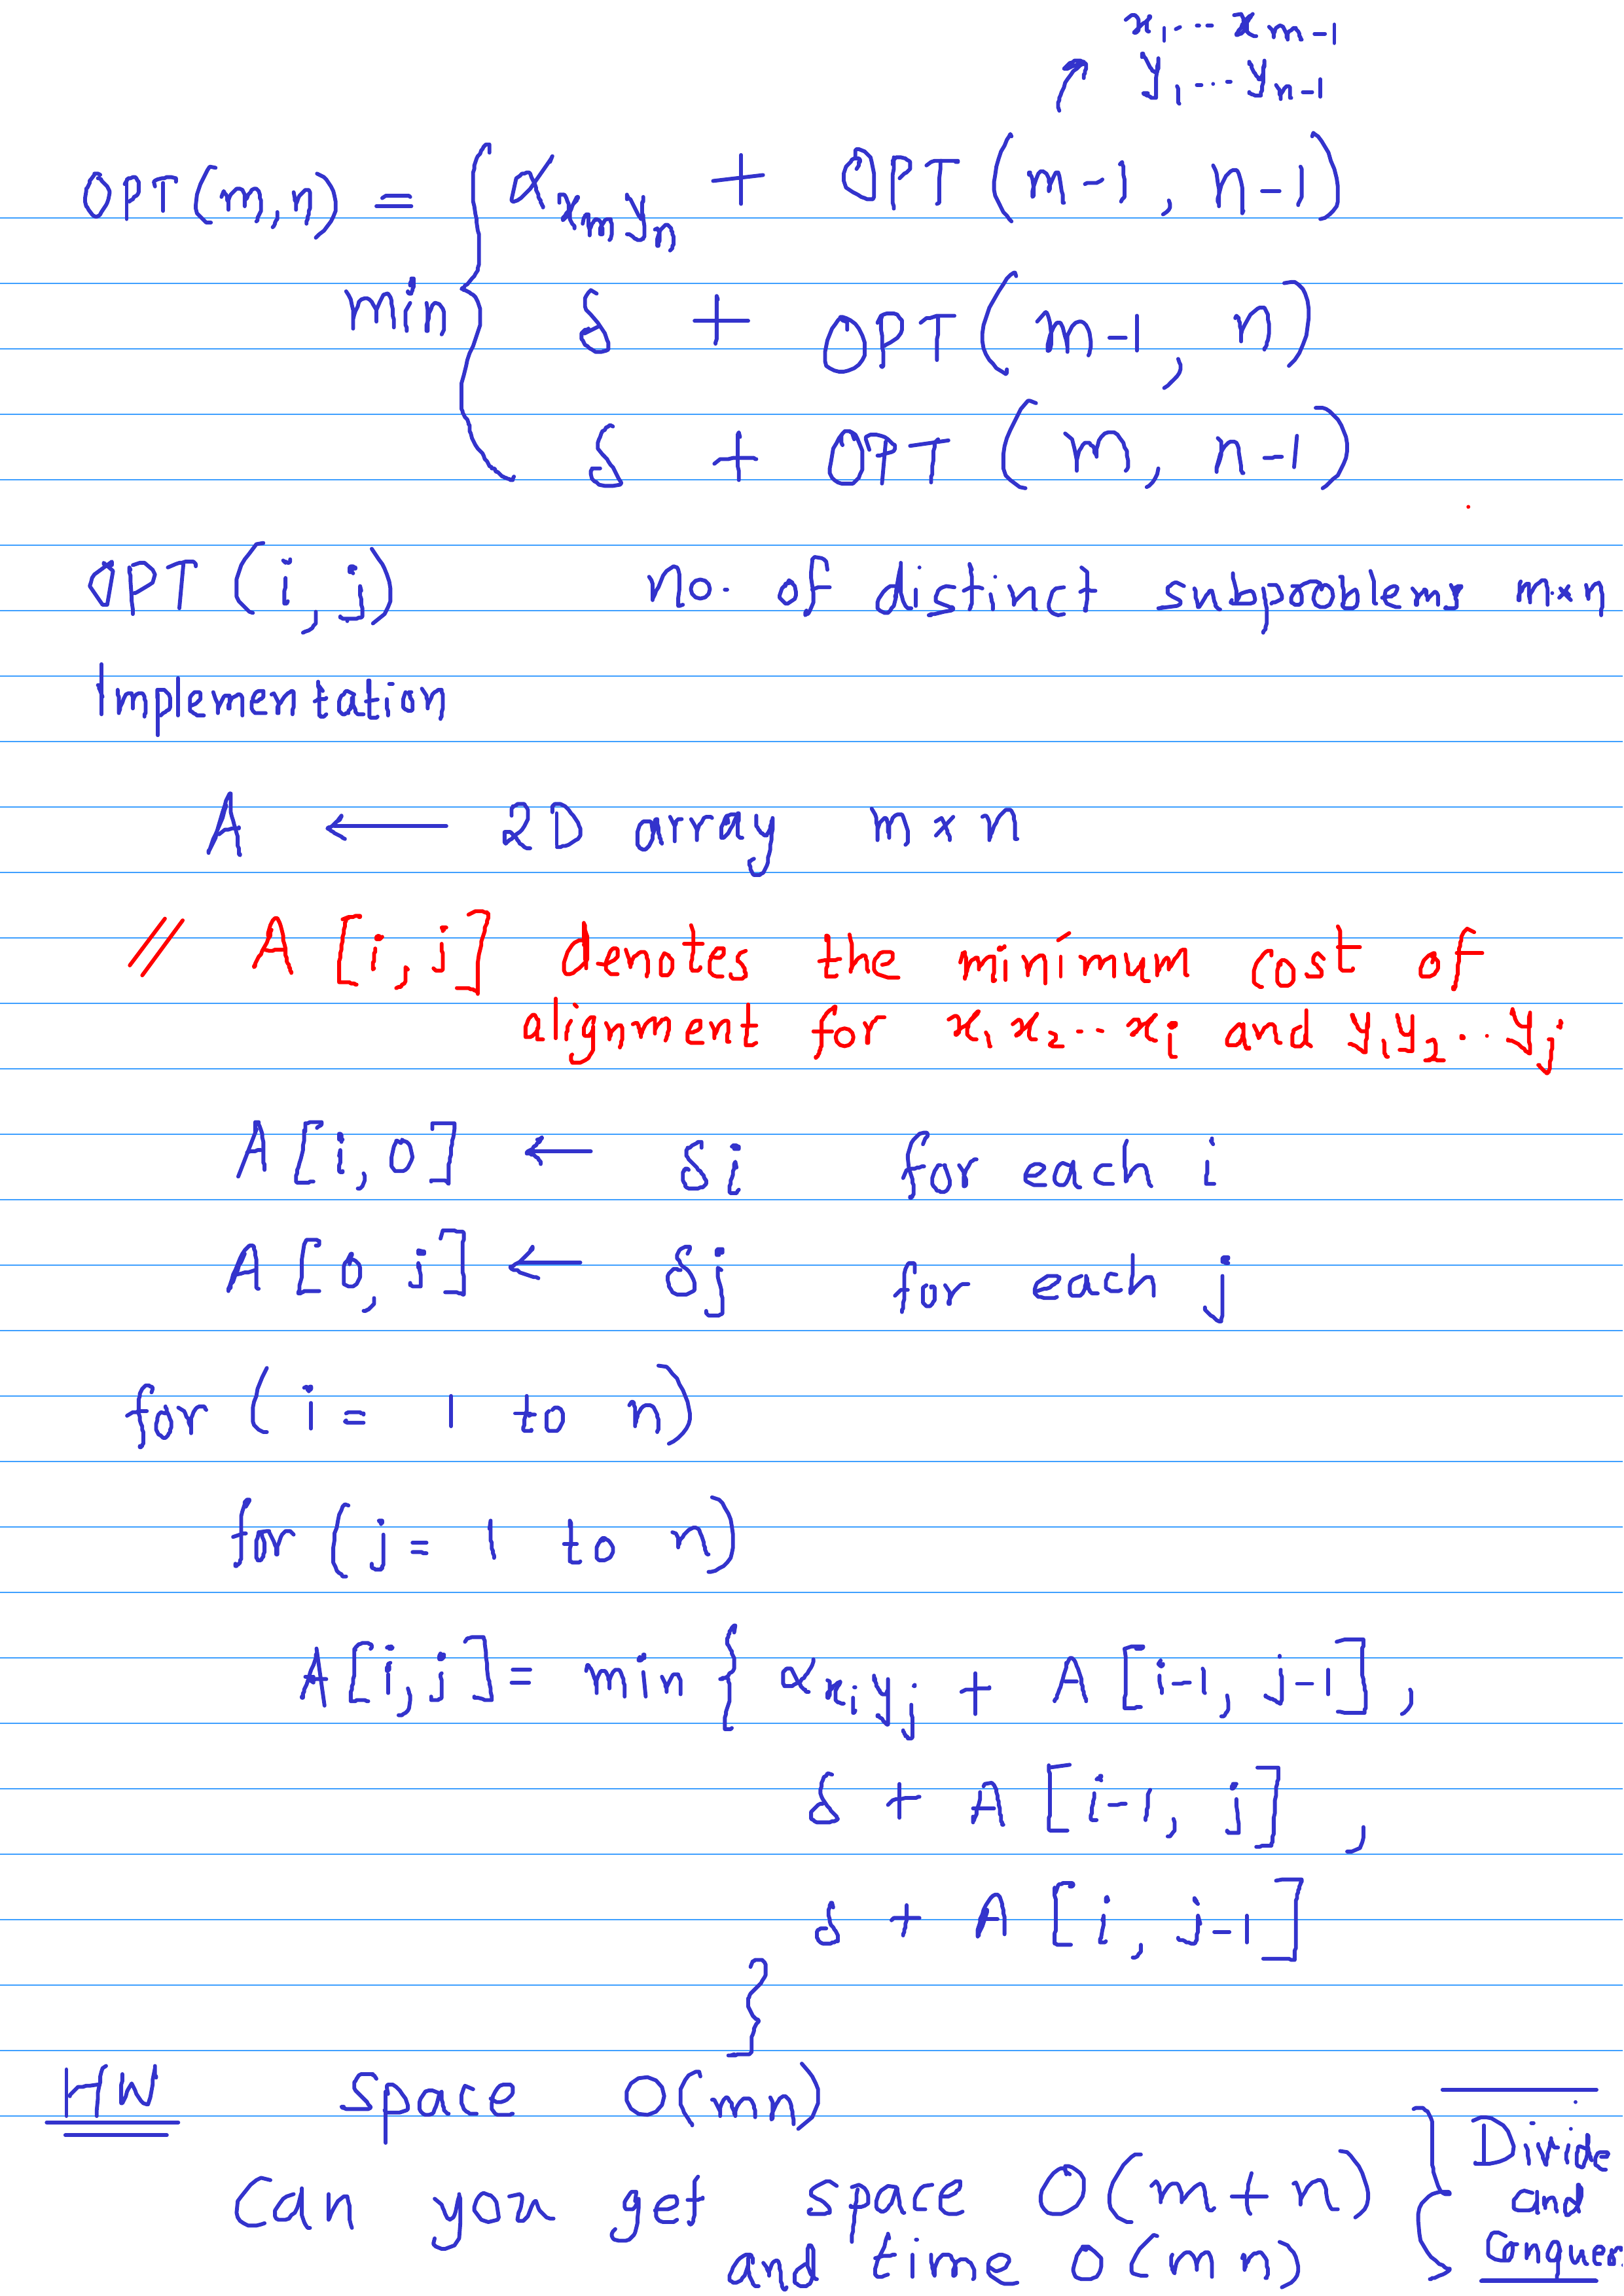 x₁ ... x_{m-1}
y₁ ... y_{n-1}
OPT(m,n) = min { α_{x_m y_n} + OPT(m-1, n-1)
δ + OPT(m-1, n)
δ + OPT(m, n-1)
OPT(i,j) no. of distinct subproblems m×n
Implementation
A ← 2D array m×n
// A[i,j] denotes the minimum cost of
alignment for x₁x₂...x_i and y₁y₂...y_j
A[i,0] ← δi for each i
A[0,j] ← δj for each j
for (i = 1 to n)
for (j = 1 to n)
A[i,j] = min { α_{x_i y_j} + A[i-1, j-1],
δ + A[i-1, j],
δ + A[i, j-1]
}
HW space O(mn)
Can you get space O(m+n)
and time O(mn)
} Divide
and
Conquer